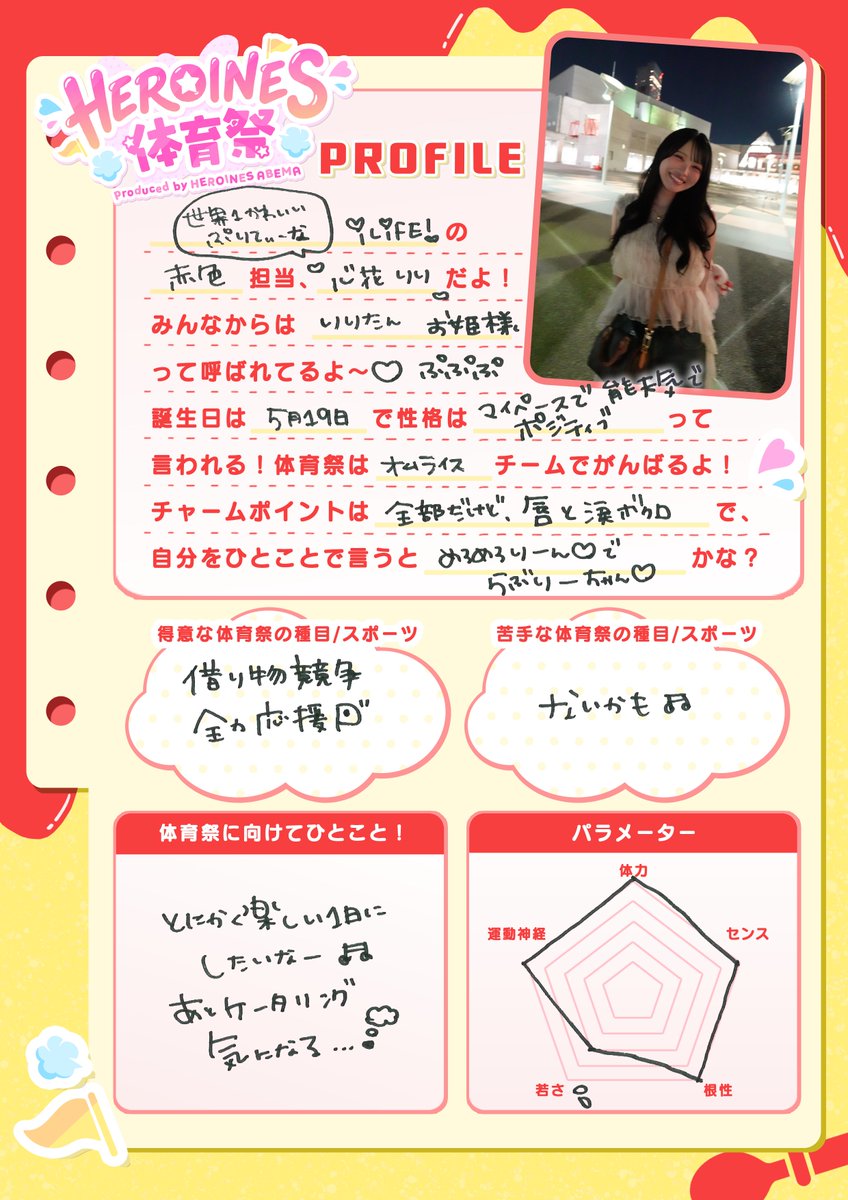 HEROINES
体育祭
produced by HEROINES ABEMA
PROFILE
世界1かわいい
ぷりてぃーな
iLiFE!の
赤色 担当、心花りりだよ！
みんなからは りりたん お姫様
って呼ばれてるよ～♡ ぷぷぷ
誕生日は 5月19日 で性格は マイペースで 能天気で ポジティブ って
言われる！体育祭は オムライス チームでがんばるよ！
チャームポイントは 全部だけど、唇と涙ボクロ で、
自分をひとことで言うと めろめろりーん♡で らぶりーちゃん♡ かな？
得意な体育祭の種目/スポーツ
借り物競争
全力応援
苦手な体育祭の種目/スポーツ
ないかも♫
体育祭に向けてひとこと！
とにかく楽しい1日に
したいなー♫
あとケータリング
気になる...
パラメーター
体力
運動神経
センス
若さ
根性